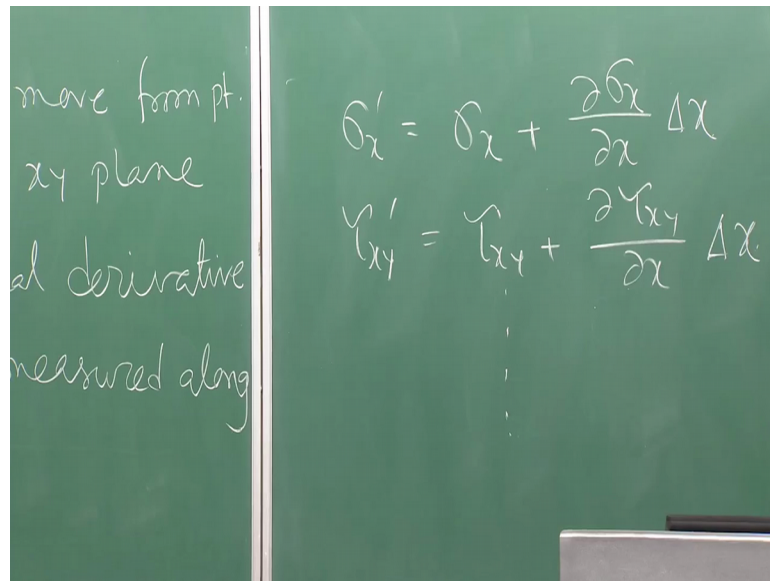 move from pt.
xy plane
al derivative
measured along
σₓ' = σₓ + ∂σₓ/∂x Δx
τₓᵧ' = τₓᵧ + ∂τₓᵧ/∂x Δx.